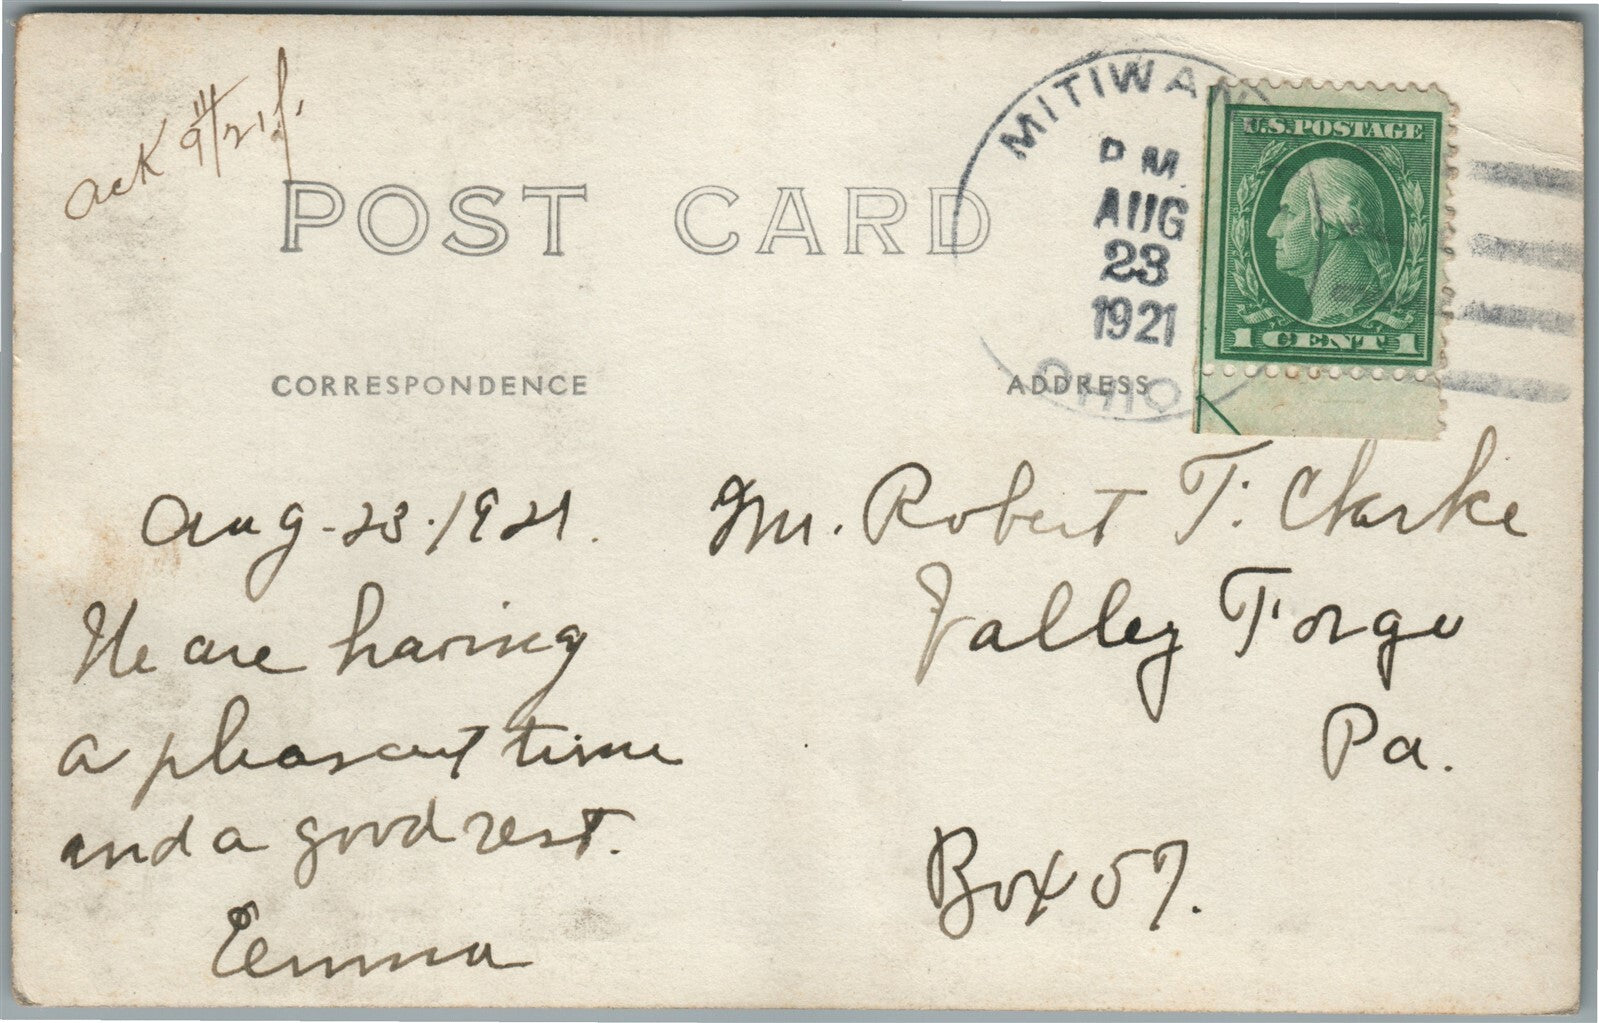 ack 9/21
POST CARD
MITIWANGA
P M
AUG
23
1921
OHIO
U.S. POSTAGE
1 CENT 1
CORRESPONDENCE
ADDRESS
Aug-23-1921.
We are having
a pleasant time
and a good rest.
Emma
Mr. Robert T. Clarke
Valley Forge
Pa.
Box 57.